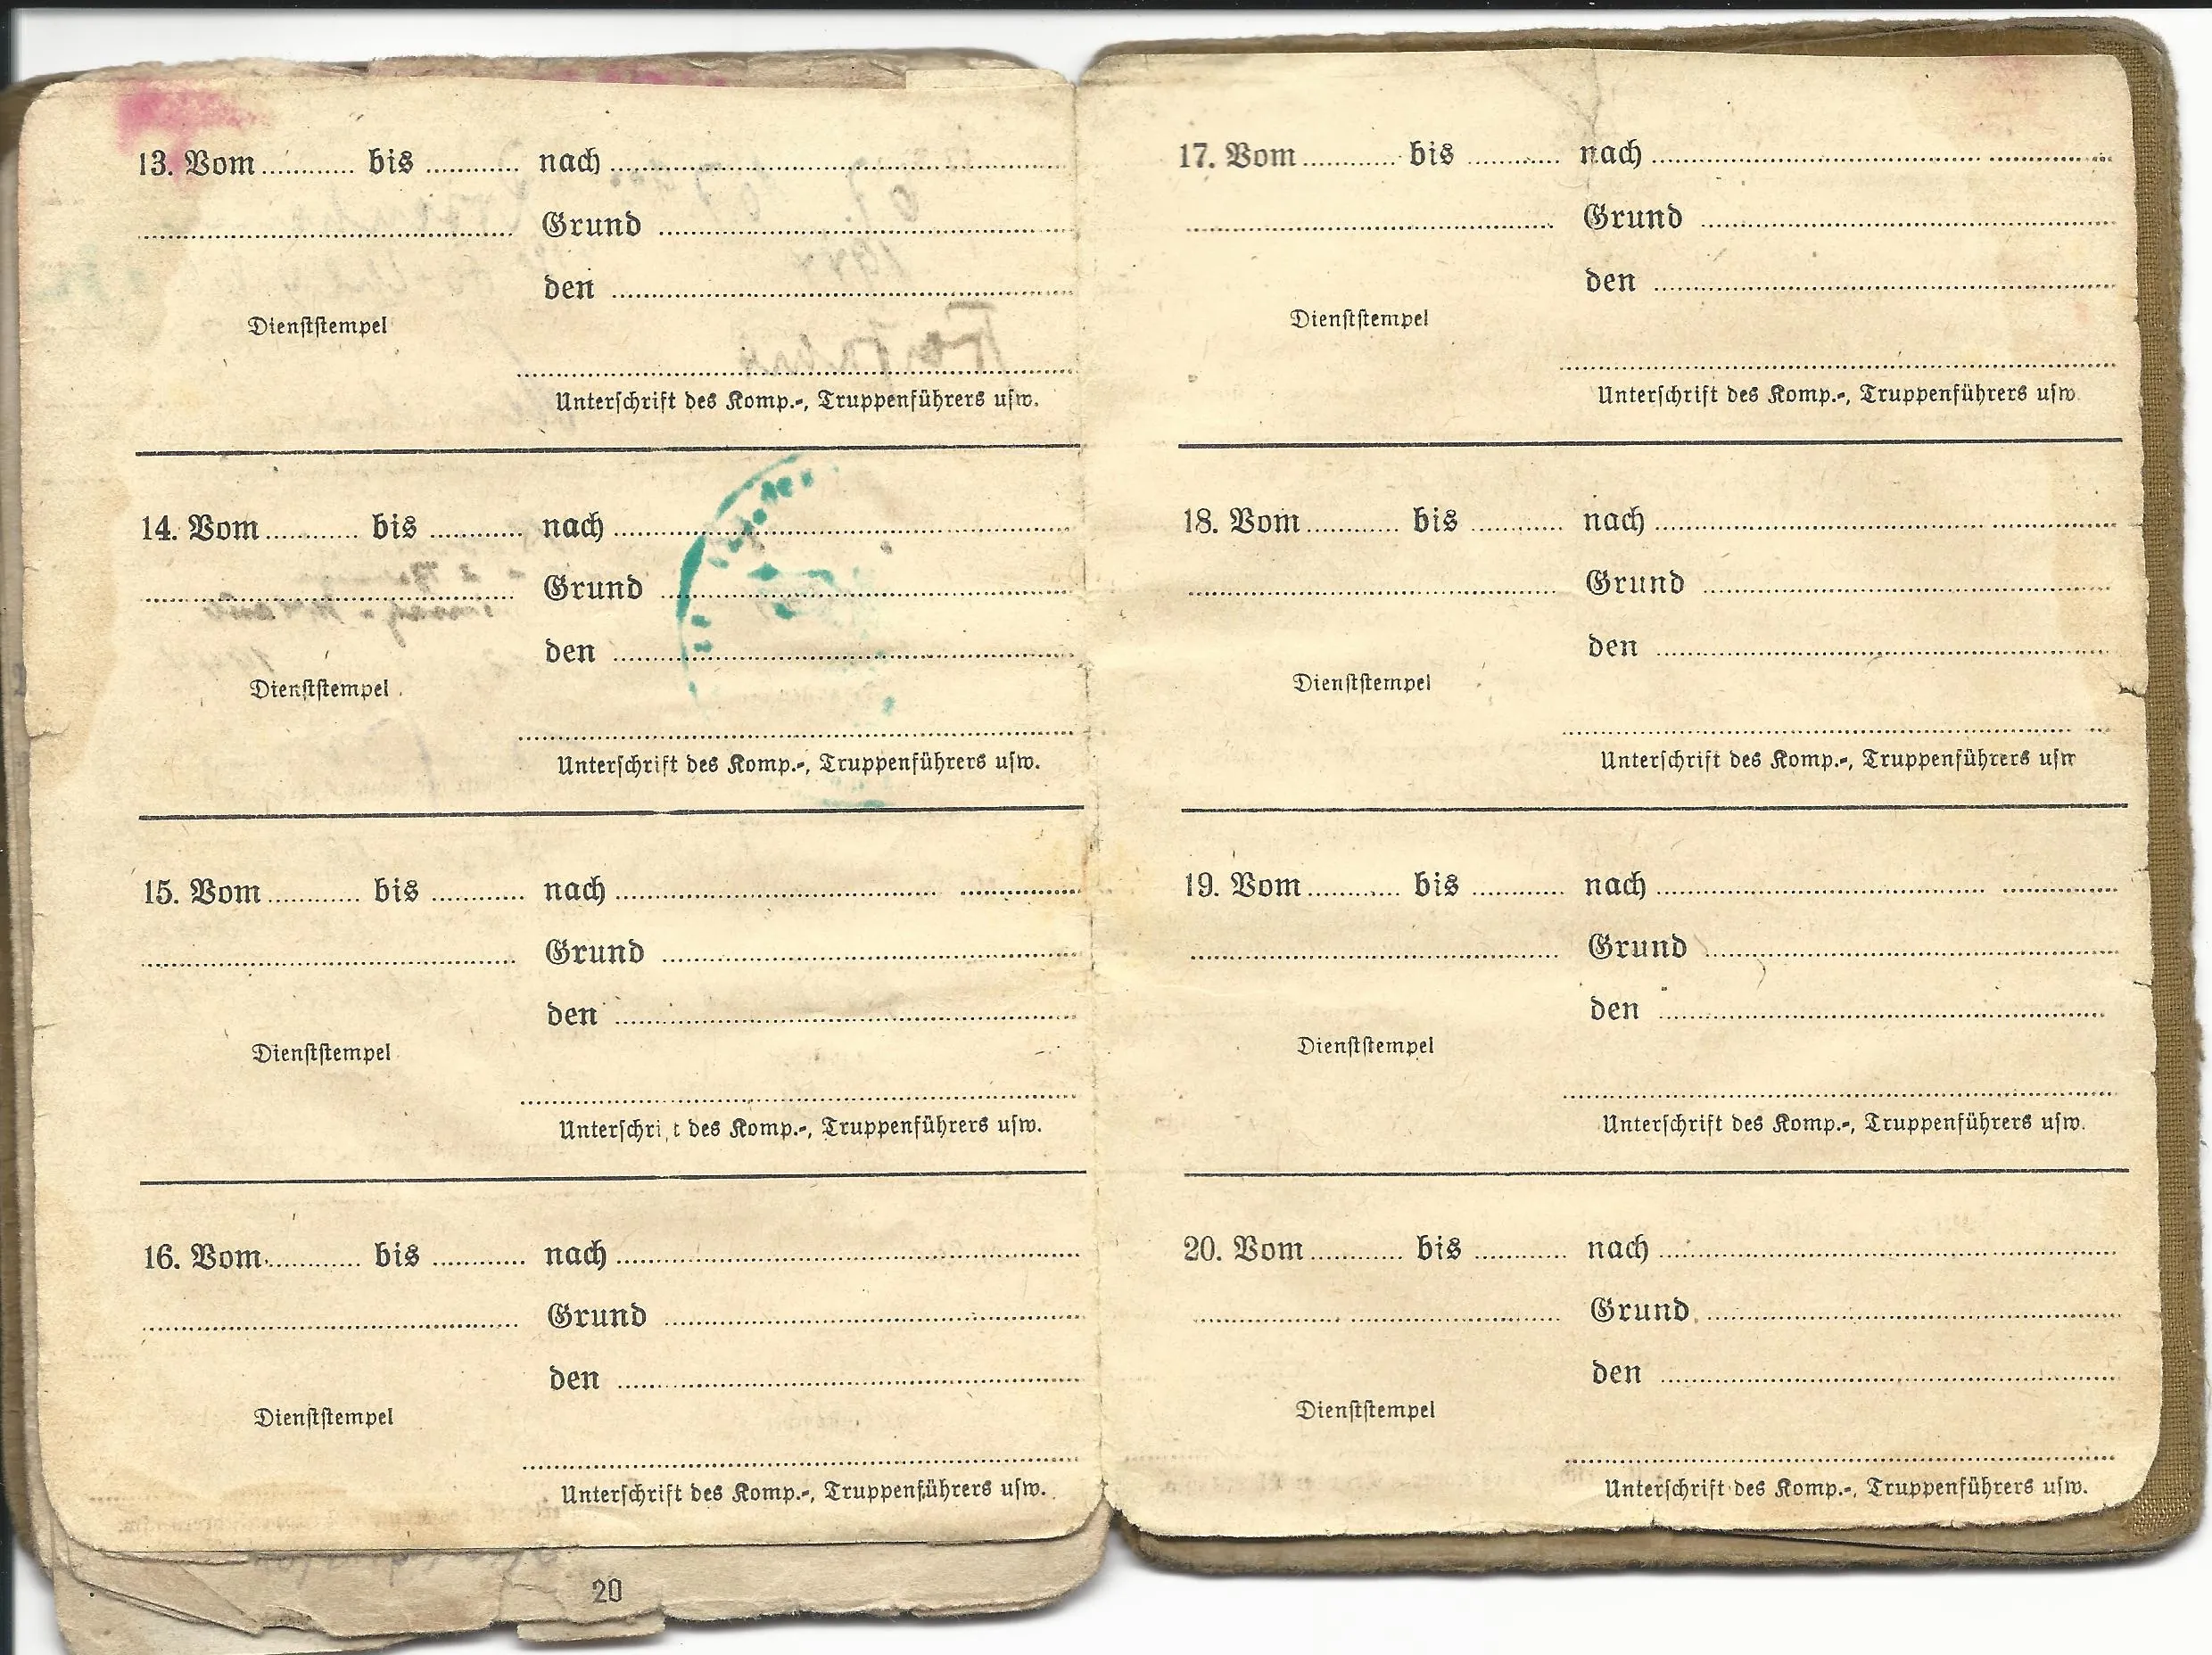 13. Vom ............ bis ............ nach ............
............ Grund ............
den ............
Dienststempel
Unterschrift des Komp.-, Truppenführers usw.
14. Vom ............ bis ............ nach ............
............ Grund ............
den ............
Dienststempel
Unterschrift des Komp.-, Truppenführers usw.
15. Vom ............ bis ............ nach ............
............ Grund ............
den ............
Dienststempel
Unterschrift des Komp.-, Truppenführers usw.
16. Vom ............ bis ............ nach ............
............ Grund ............
den ............
Dienststempel
Unterschrift des Komp.-, Truppenführers usw.
20
17. Vom ............ bis ............ nach ............
............ Grund ............
den ............
Dienststempel
Unterschrift des Komp.-, Truppenführers usw.
18. Vom ............ bis ............ nach ............
............ Grund ............
den ............
Dienststempel
Unterschrift des Komp.-, Truppenführers usw.
19. Vom ............ bis ............ nach ............
............ Grund ............
den ............
Dienststempel
Unterschrift des Komp.-, Truppenführers usw.
20. Vom ............ bis ............ nach ............
............ Grund ............
den ............
Dienststempel
Unterschrift des Komp.-, Truppenführers usw.